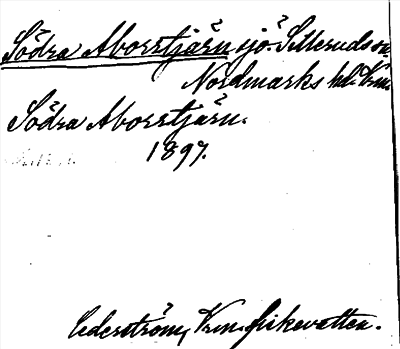 Södra Aborrtjärn sjö. Silleruds sn.
Nordmarks hd. Vrm.
Södra Aborrtjärn.
1897.
Cederström, Vrm. fiskevatten.